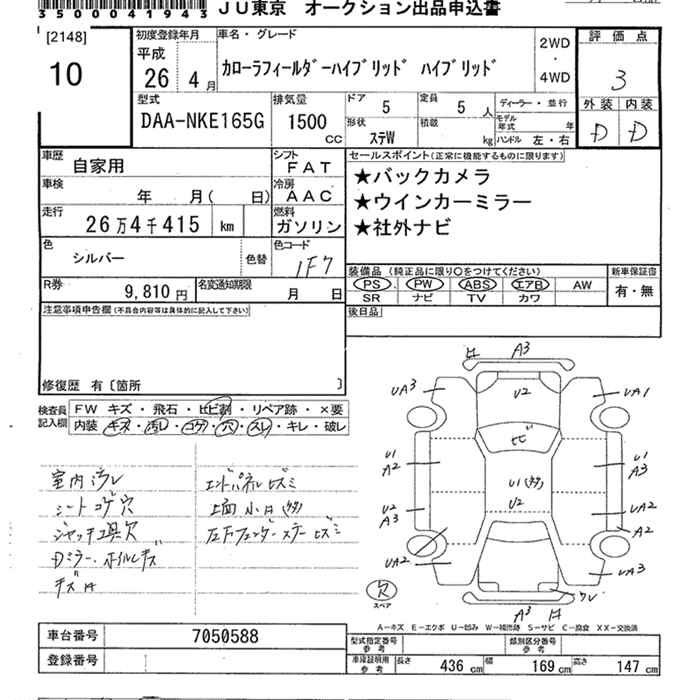 3500041943
JU東京 オークション出品申込書
[2148]
10
初度登録年月
平成
26年 4月
車名・グレード
カローラフィールダーハイブリッド ハイブリッド
2WD
・
4WD
評価点
3
外装 内装
D D
型式
DAA-NKE165G
排気量
1500
cc
ドア 5
定員 5 人
ディーラー・並行
形状 ステW
積載 kg
モデル年式 年
ハンドル 左・右
車歴 自家用
シフト FAT
車検 年 月( 日)
冷房 AAC
走行 26万4千415 km
燃料 ガソリン
色 シルバー 色替
色コード 1F7
R券 9,810円
名変通知期限 月 日
セールスポイント(正常に機能するものに限ります)
★バックカメラ
★ウインカーミラー
★社外ナビ
装備品(純正品に限り○をつけてください)
新車保証書
PS PW ABS エアB AW
有・無
SR ナビ TV カワ
後日品
注意事項申告欄(不具合内容等は具体的に記入して下さい)
修復歴 有〔箇所 〕
検査員記入欄
FW キズ・飛石・ヒビ割・リペア跡・×要
内装 キズ・汚レ・コゲ・穴・スレ・キレ・破レ
室内汚レ
シートコゲ穴
ジャッキ工具欠
Dミラー・ホイルキズ
エンドパネルヒズミ
左Fフェンダーステーヒズミ
A3
UA3
U2
UA1
ヒビ
U1
A2
U1
A3
U1(多)
U2
U2
A3
UA2
A2
UA2
UA3
欠
スペア
A3
A-キズ E-エクボ U-凹み W-補修跡 S-サビ C-腐食 XX-交換済
車台番号 7050588
登録番号
型式指定番号 参考
類別区分番号 参考
車庫証明用 参考
長さ 436cm
幅 169cm
高さ 147cm